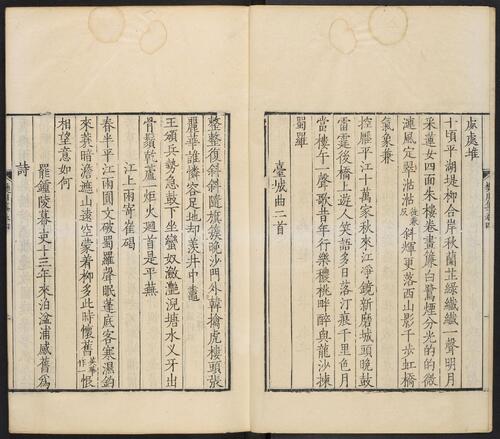 處處堆
十頃平湖堤柳合岸秋蘭芷綠纖纖一聲明月
采蓮女四面朱樓卷畫簾白鷺煙分光的的微
漣風定翠湉湉徒兼反斜輝更落西山影千步虹橋
氣象兼
控壓平江十萬家秋來江淨鏡新磨城頭晚鼓
雷霆後橋上遊人笑語多日落汀痕千里色月
當樓午一聲歌昔年行樂穠桃畔醉與龍沙揀
蜀羅
臺城曲二首
整整復斜斜隨旗簇晚沙門外韓擒虎樓頭張
麗華誰憐容足地却羨井中鼃
王頒兵勢急鼓下坐蠻奴瀲灧倪塘水叉牙出
骨鬚乾蘆一炬火迴首是平蕪
江上雨寄崔碣
春半平江雨圓文破蜀羅聲眠篷底客寒濕釣
來蓑暗澹遮山遠空濛着柳多此時懷舊英華作恨
相望意如何
罷鍾陵幕吏十三年來泊湓浦感舊爲
詩